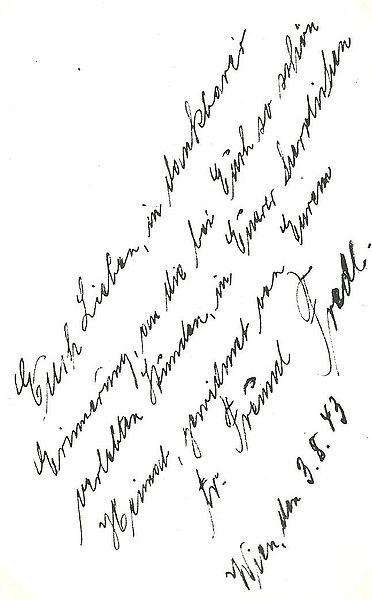 Euch Lieben, in dankbarer
Erinnerung, an die bei Euch so schön
verlebten Stunden, in Eurer herrlichen
Heimat, gewidmet von Eurem
tr. Freund Fredl.
Wien, den 3.8.43